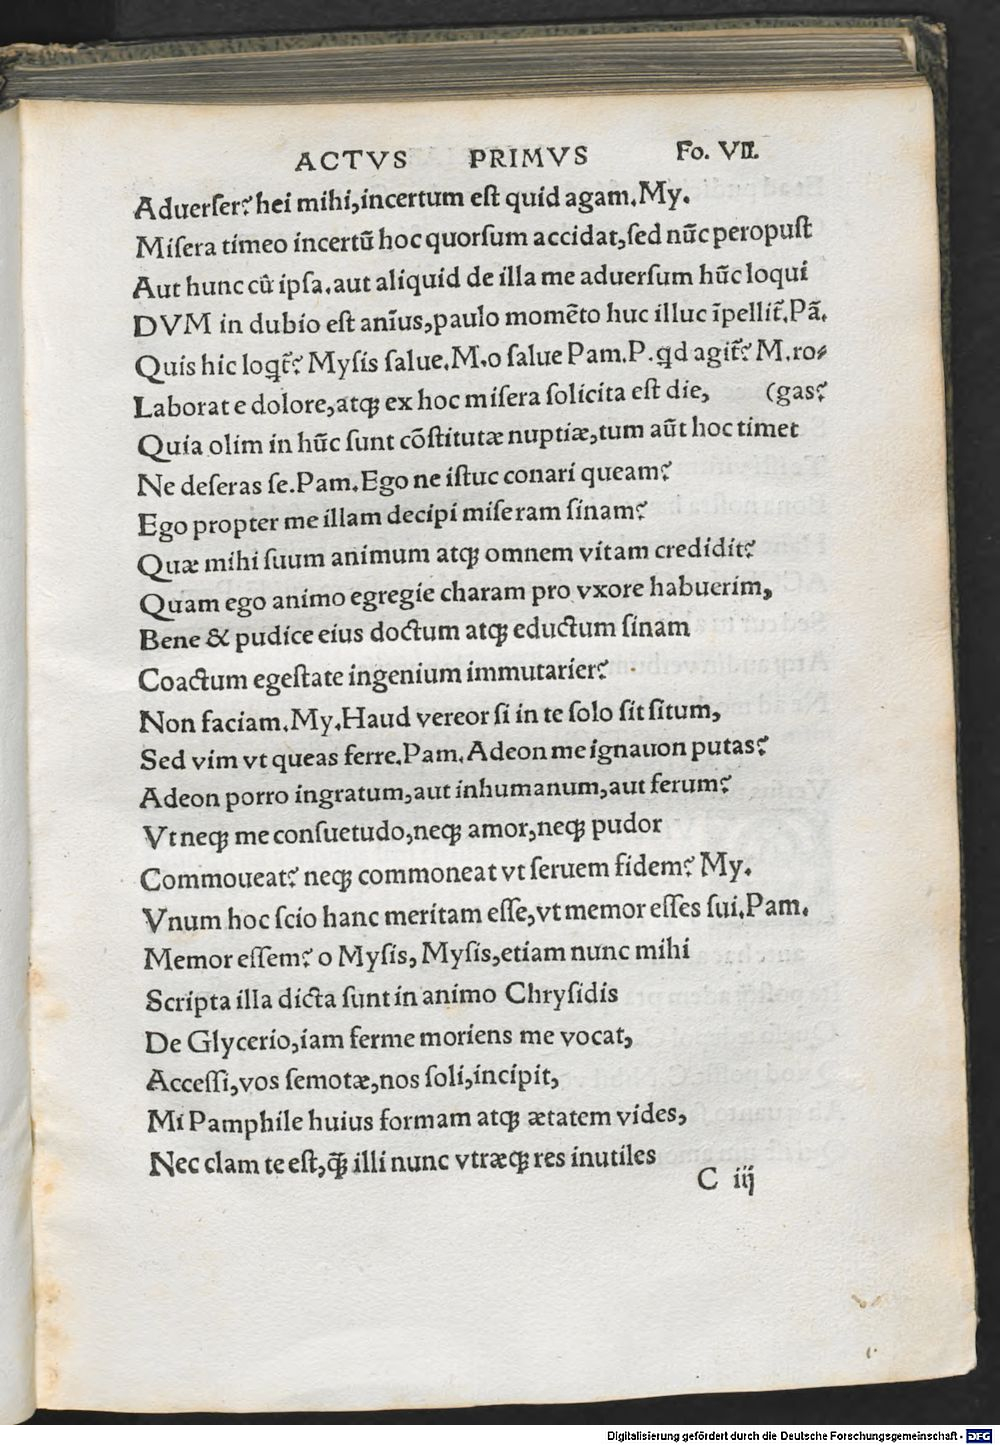 ACTVS PRIMVS Fo. VII.
Aduerser? hei mihi,incertum eſt quid agam.My.
Miſera timeo incertū hoc quorſum accidat,ſed nūc peropuſt
Aut hunc cū ipſa.aut aliquid de illa me aduerſum hūc loqui
DVM in dubio eſt anīus,paulo momēto huc illuc īpellit̃.Pā.
Quis hic loqt̃? Myſis ſalue.M.o ſalue Pam.P.qd agit̃? M.ro⸗
Laborat e dolore,atq; ex hoc miſera ſolicita eſt die, (gas?
Quia olim in hūc ſunt cōſtitutæ nuptiæ,tum aūt hoc timet
Ne deſeras ſe.Pam.Ego ne iſtuc conari queam?
Ego propter me illam decipi miſeram ſinam?
Quæ mihi ſuum animum atq; omnem vitam credidit?
Quam ego animo egregie charam pro vxore habuerim,
Bene & pudice eius doctum atq; eductum ſinam
Coactum egeſtate ingenium immutarier?
Non faciam.My.Haud vereor ſi in te ſolo ſit ſitum,
Sed vim vt queas ferre.Pam.Adeon me ignauon putas?
Adeon porro ingratum,aut inhumanum,aut ferum?
Vt neq; me conſuetudo,neq; amor,neq; pudor
Commoueat? neq; commoneat vt ſeruem fidem? My.
Vnum hoc ſcio hanc meritam eſſe,vt memor eſſes ſui.Pam.
Memor eſſem? o Myſis, Myſis,etiam nunc mihi
Scripta illa dicta ſunt in animo Chryſidis
De Glycerio,iam ferme moriens me vocat,
Acceſſi,vos ſemotæ,nos ſoli,incipit,
Mi Pamphile huius formam atq; ætatem vides,
Nec clam te eſt,q̃; illi nunc vtræq; res inutiles
C iij
Digitalisierung gefördert durch die Deutsche Forschungsgemeinschaft - DFG